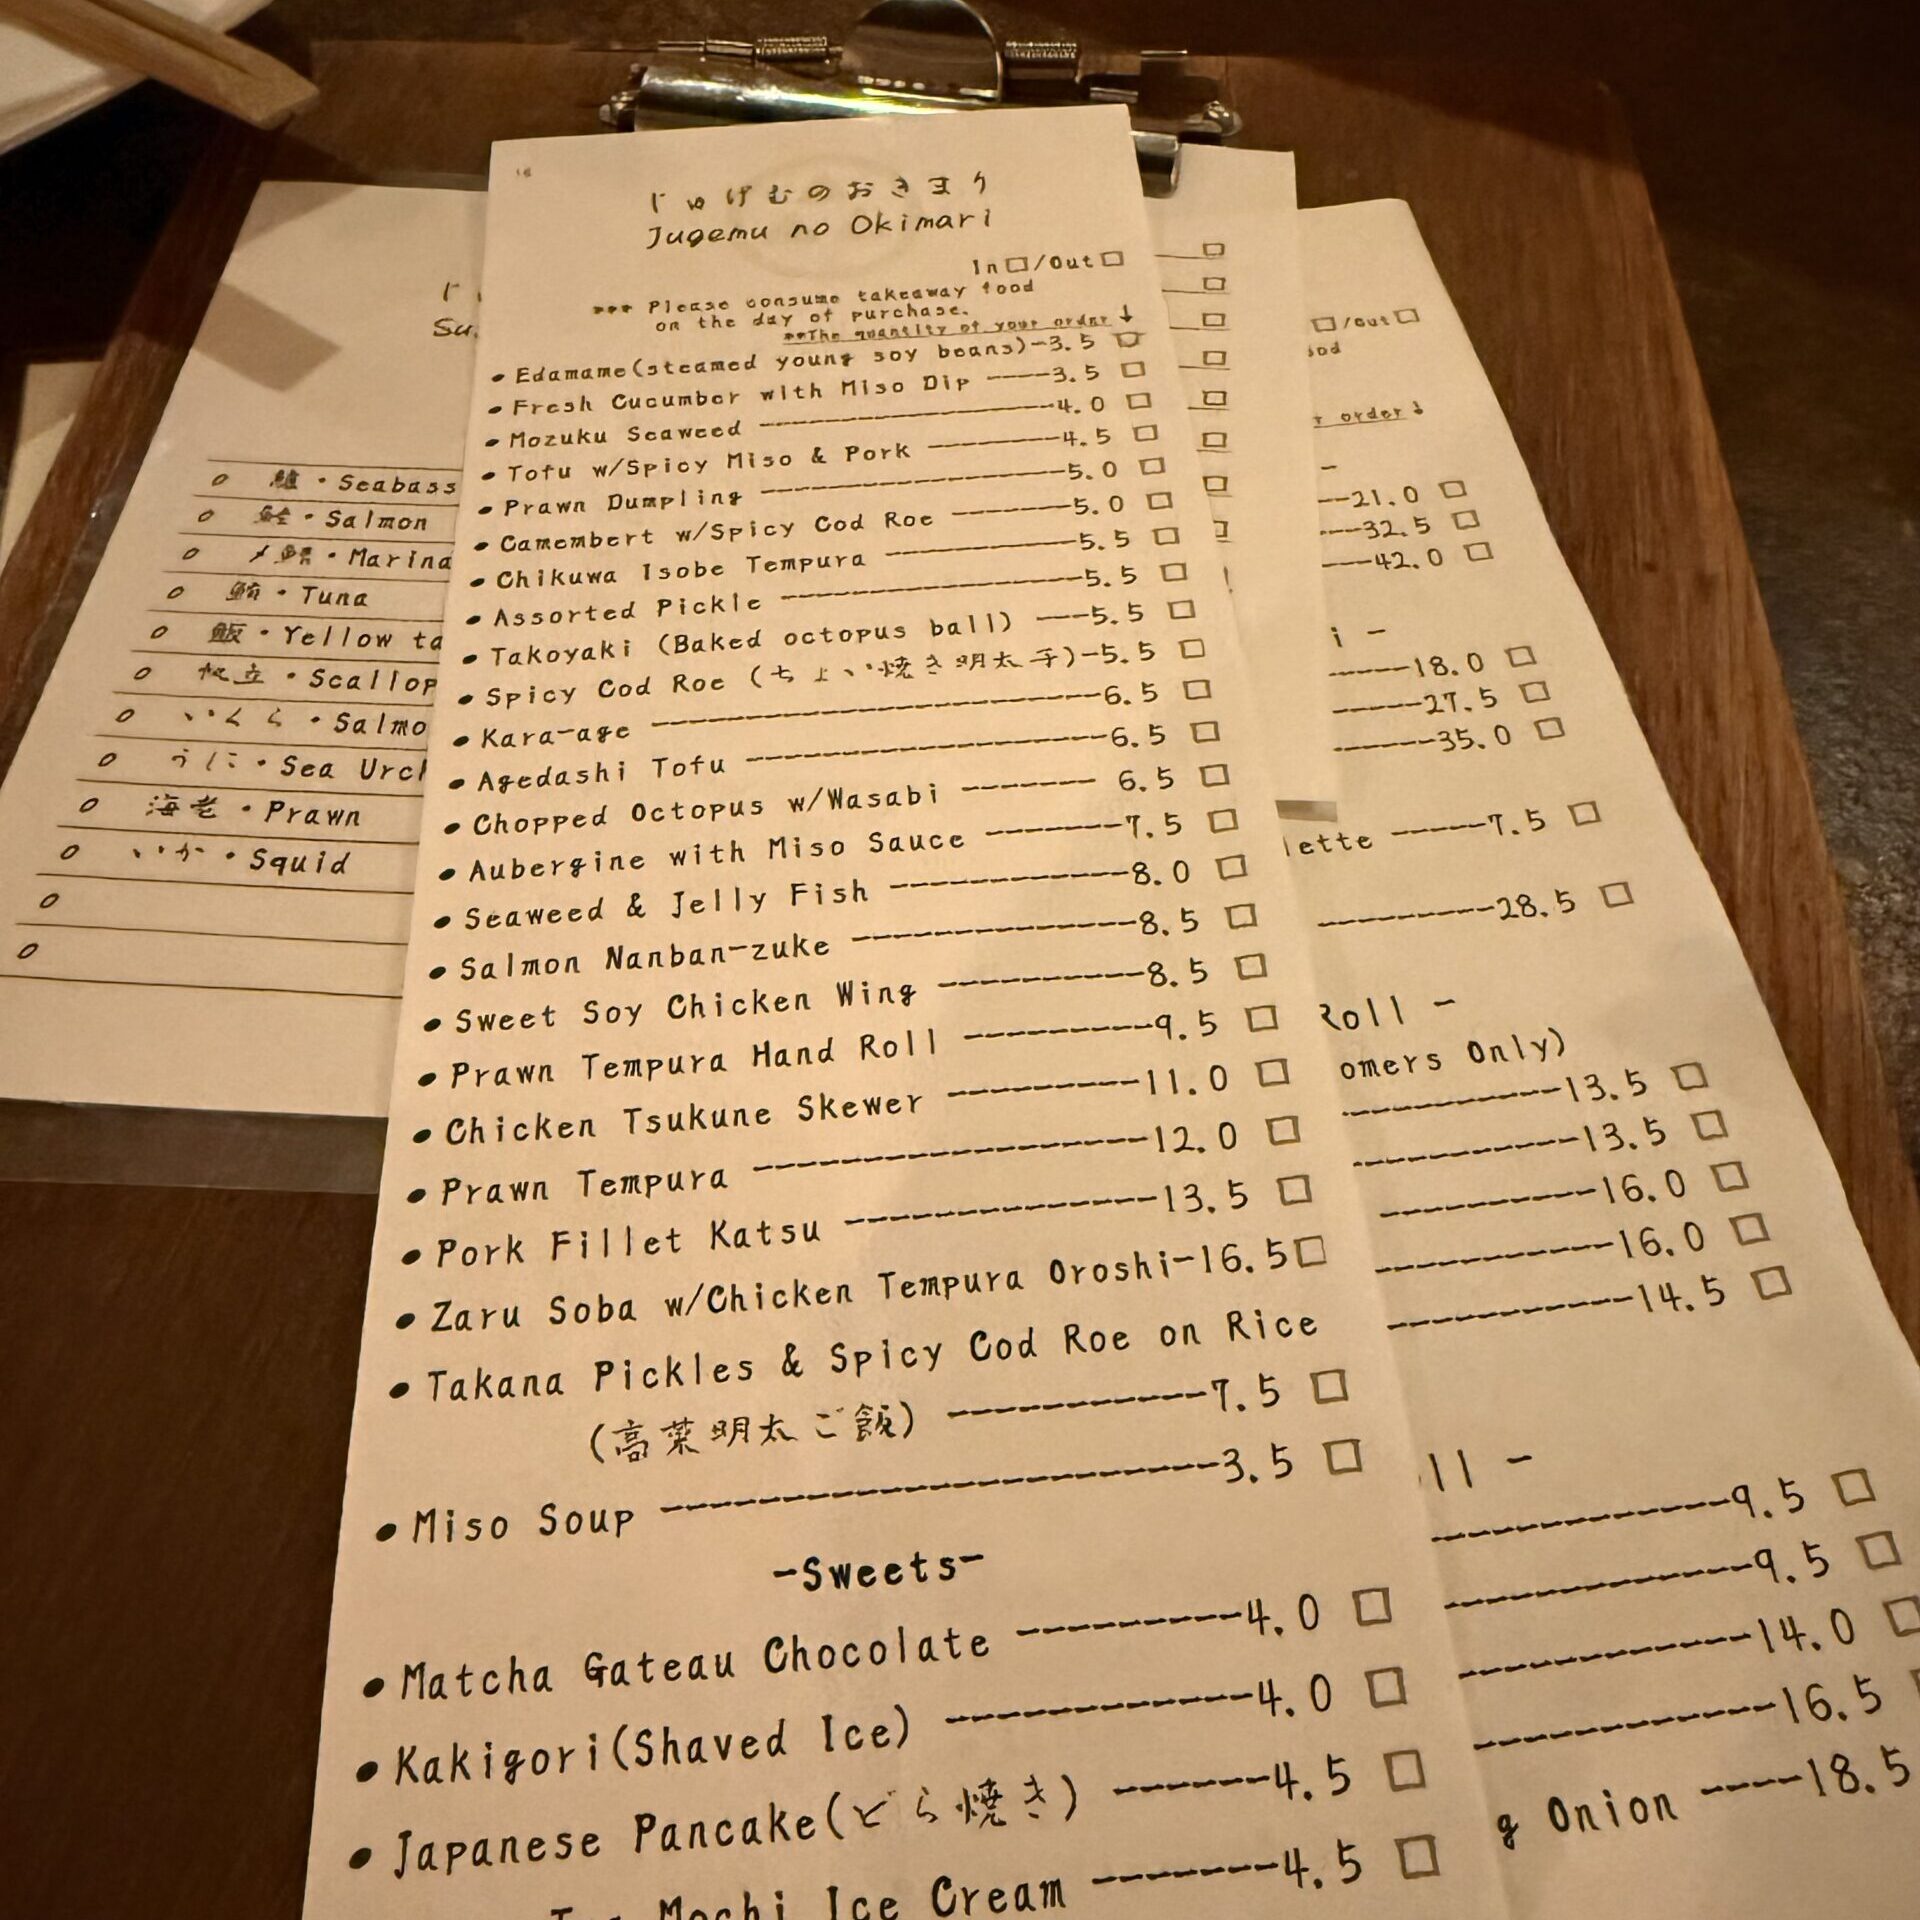 じゅげむのおきまり
Jugemu no Okimari
In□/Out□
*** Please consume takeaway food
on the day of purchase.
**The quantity of your order ↓
• Edamame(steamed young soy beans)-3.5 □
• Fresh Cucumber with Miso Dip ----3.5 □
• Mozuku Seaweed ----4.0 □
• Tofu w/Spicy Miso & Pork ----4.5 □
• Prawn Dumpling ----5.0 □
• Camembert w/Spicy Cod Roe ----5.0 □
• Chikuwa Isobe Tempura ----5.5 □
• Assorted Pickle ----5.5 □
• Takoyaki (Baked octopus ball) ---5.5 □
• Spicy Cod Roe (ちょい焼き明太子)-5.5 □
• Kara-age ----6.5 □
• Agedashi Tofu ----6.5 □
• Chopped Octopus w/Wasabi ---- 6.5 □
• Aubergine with Miso Sauce ----7.5 □
• Seaweed & Jelly Fish ----8.0 □
• Salmon Nanban-zuke ----8.5 □
• Sweet Soy Chicken Wing ----8.5 □
• Prawn Tempura Hand Roll ----9.5 □
• Chicken Tsukune Skewer ----11.0 □
• Prawn Tempura ----12.0 □
• Pork Fillet Katsu ----13.5 □
• Zaru Soba w/Chicken Tempura Oroshi-16.5□
• Takana Pickles & Spicy Cod Roe on Rice
(高菜明太ご飯) ----7.5 □
• Miso Soup ----3.5 □
-Sweets-
• Matcha Gateau Chocolate ----4.0 □
• Kakigori(Shaved Ice) ----4.0 □
• Japanese Pancake(どら焼き) ----4.5 □
Mochi Ice Cream ----4.5 □
Su
○ 鱸・Seabass
○ 鮭・Salmon
○ 〆鯖・Marina
○ 鮪・Tuna
○ 飯・Yellow ta
○ 帆立・Scallop
○ いくら・Salmo
○ うに・Sea Urch
○ 海老・Prawn
○ いか・Squid
○
○
□/Out□
ood
r order↓
-
--21.0 □
---32.5 □
---42.0 □
i -
----18.0 □
----27.5 □
----35.0 □
lette ----7.5 □
----28.5 □
Roll -
omers Only)
----13.5 □
----13.5 □
----16.0 □
----16.0 □
----14.5 □
ll -
----9.5 □
----9.5 □
----14.0 □
----16.5
g Onion ----18.5